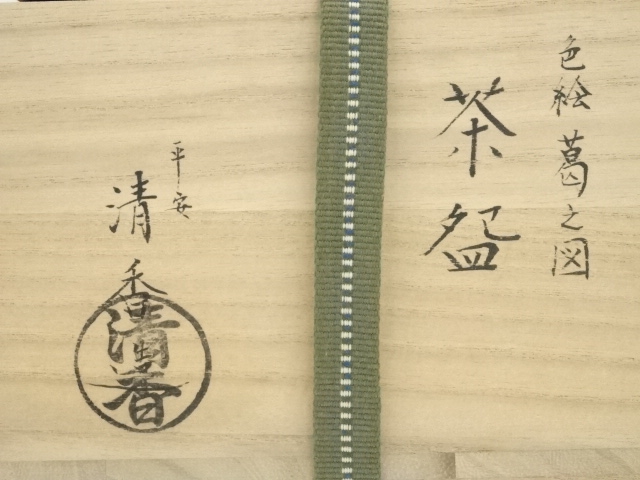 色絵 葛之図
茶盌
平安
清香
清香